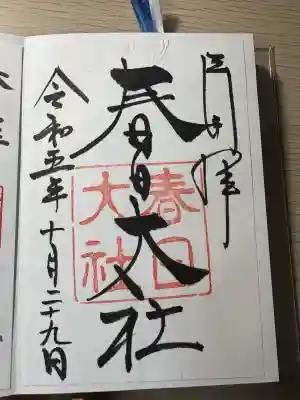 春日大社
春日
大社
令和五年 十月二十九日